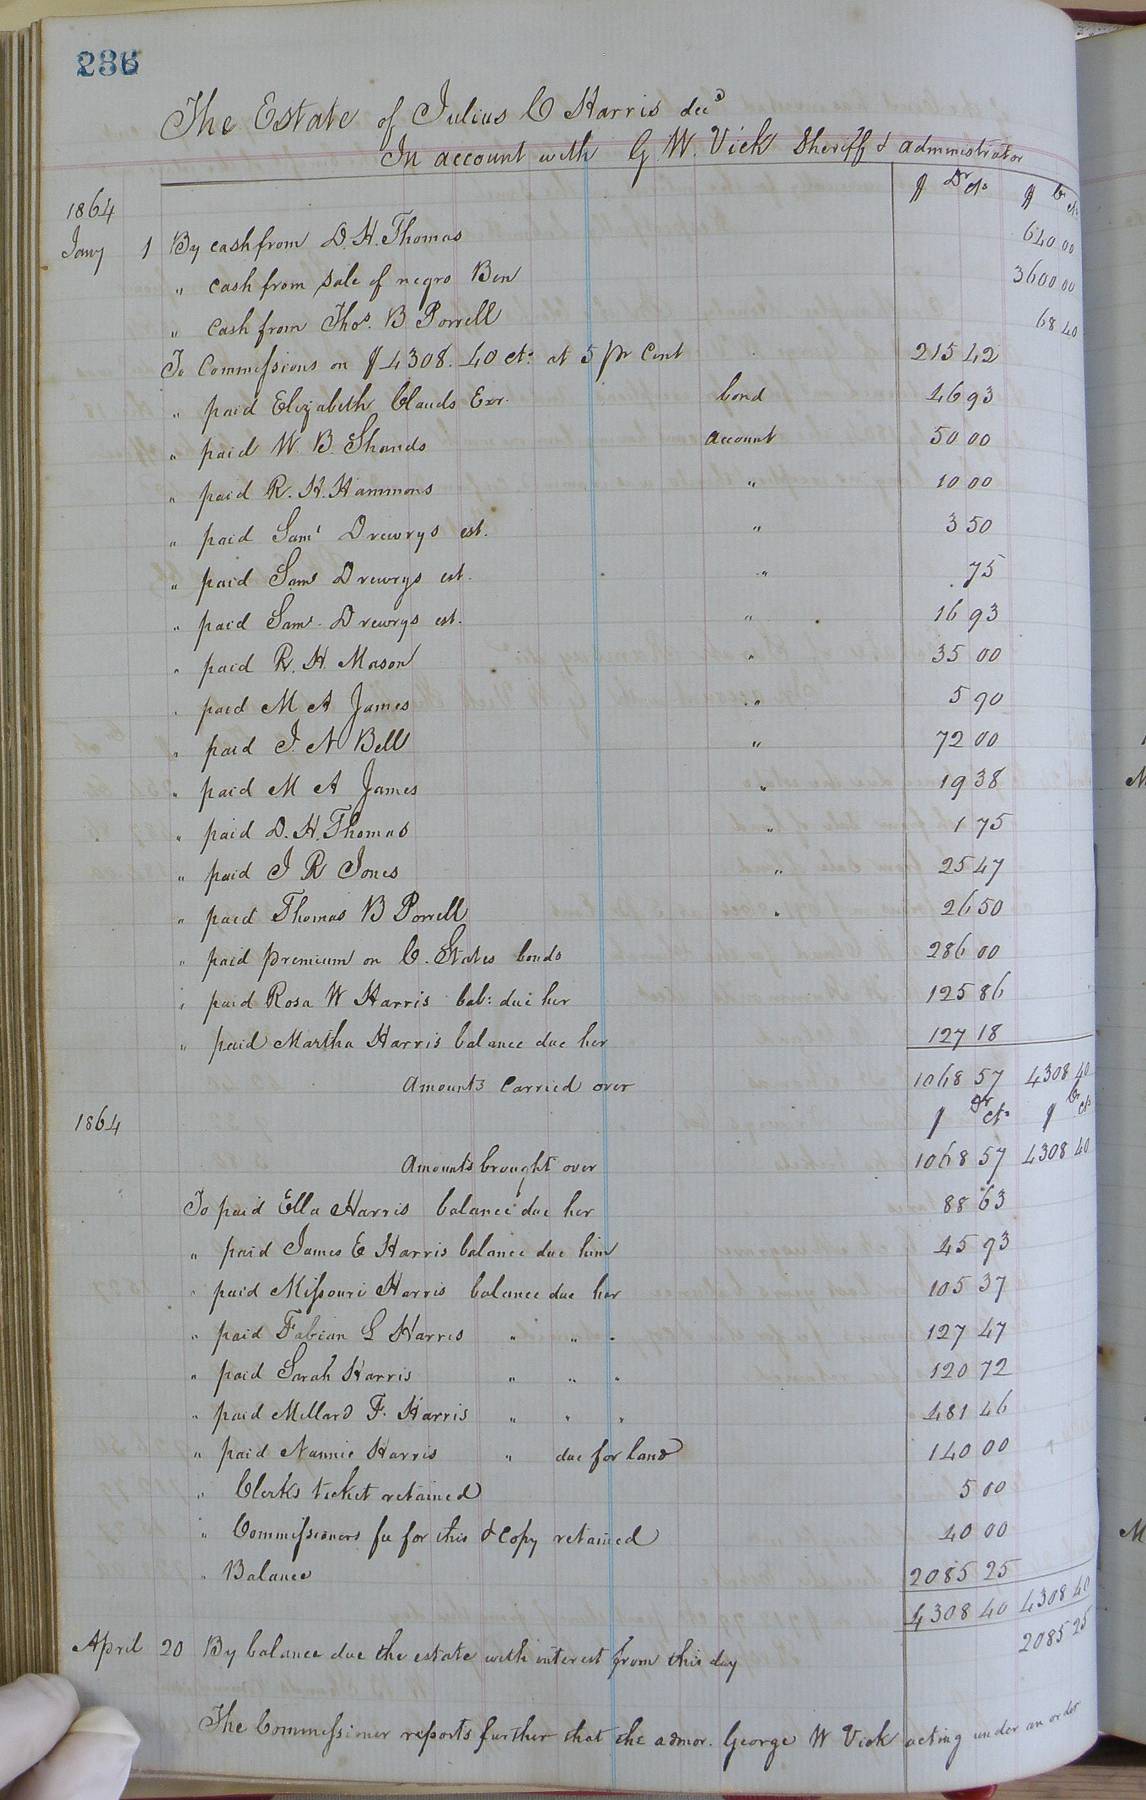 236
The Estate of Julius C Harris decd
In account with G W. Vick Sheriff & administrator
$ Dr cts $ Cr cts
1864
Jany 1 By cash from D. H. Thomas 640 00
" cash from sale of negro Ben 3600 00
" cash from Thos. B. Porrell 68 40
To Commissions on $4308. 40 cts at 5 pr Cent 215 42
" paid Elizabeth Clauds Exr. bond 46 93
" paid W. B. Shands account 50 00
" paid R. H. Hammons " 10 00
" paid Saml Drewrys est. " 3 50
" paid Saml Drewrys est. " .75
" paid Saml Drewrys est. " 16 93
" paid R. H. Mason " 35 00
" paid M A James " 5 90
" paid J. N Bell " 72 00
" paid M A James " 19 38
" paid D. H. Thomas " 1 75
" paid J R Jones " 25 47
" paid Thomas B Porrell " 26 50
" paid premium on C. States bonds 286 00
" paid Rosa W Harris bal: due her 125 86
" paid Martha Harris balance due her 127 18
Amounts Carried over 1068 57 4308 40
1864 $ Dr cts $ Cr cts
Amounts brought over 1068 57 4308 40
To paid Ella Harris balance due her 88 63
" paid James E Harris balance due him 45 93
" paid Missouri Harris balance due her 105 37
" paid Fabian L Harris " " " 127 47
" paid Sarah Harris " " " 120 72
" paid Millard F. Harris " " " 481 46
" paid Nannie Harris " due for land 140 00
" Clerks ticket retained 5 00
" Commissioners fee for this & Copy retained 40 00
" Balance 2085 25
4308 40 4308 40
April 20 By balance due the estate with interest from this day 2085 25
The Commissioner reports further that the admor. George W Vick acting under an order